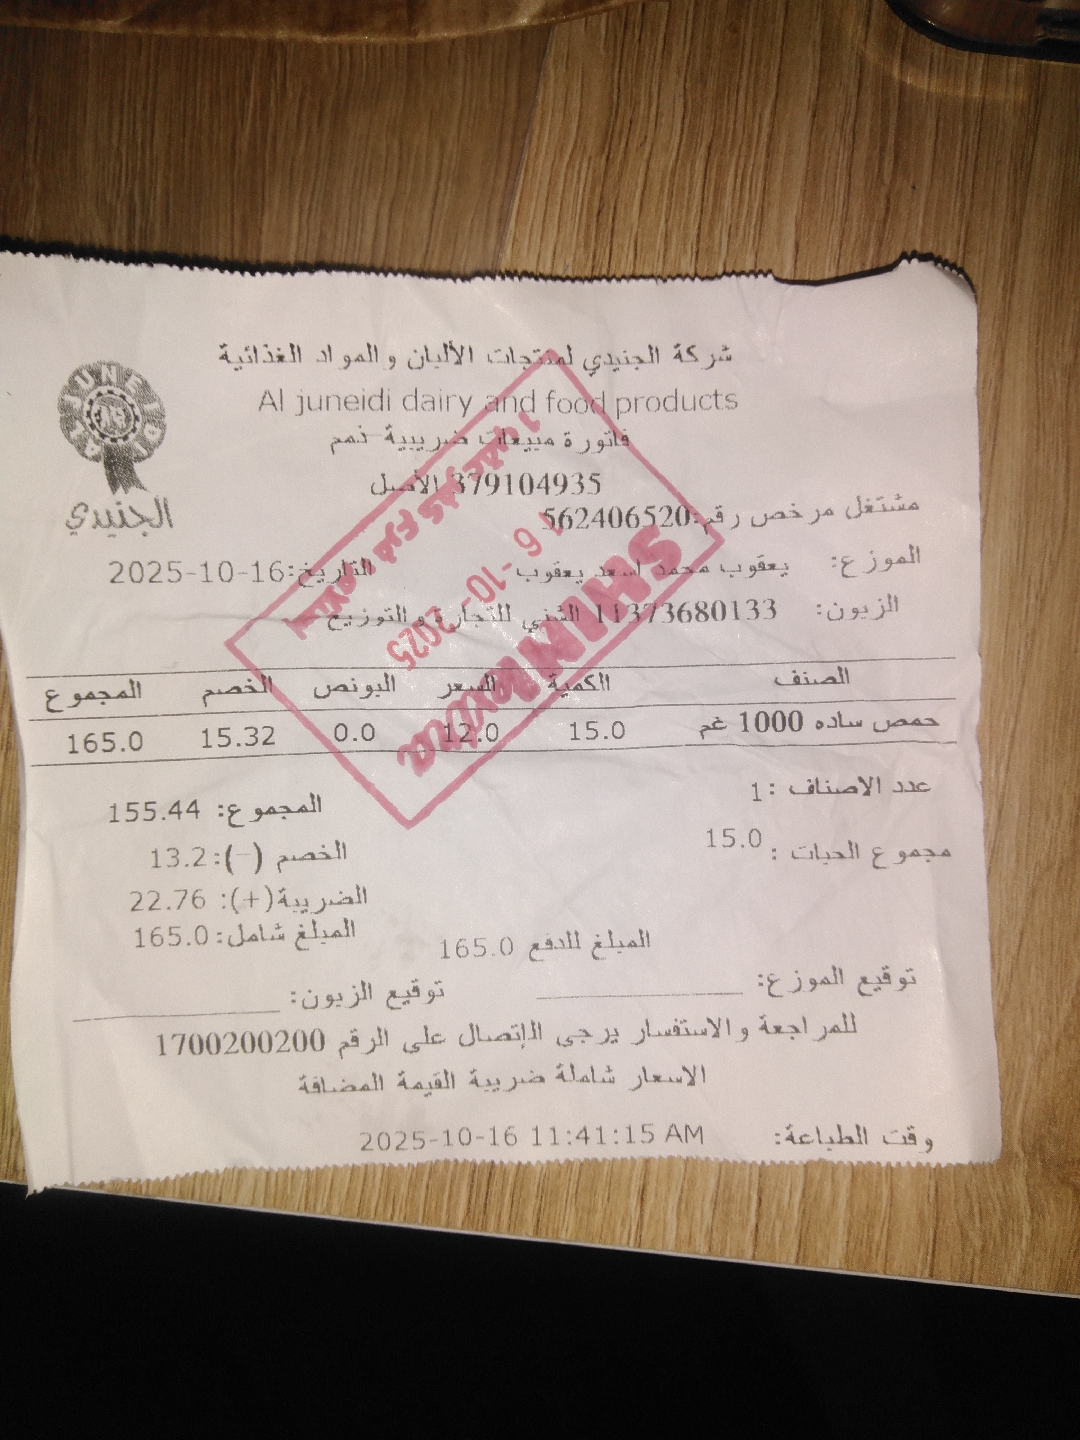 شركة الجنيدي لمنتجات الألبان والمواد الغذائية
Al juneidi dairy and food products
AL JUNEIDI
الجنيدي
فاتورة مبيعات ضريبية ذمم
379104935 الأصل
مشتغل مرخص رقم:562406520
الموزع: يعقوب محمد اسعد يعقوب
التاريخ:2025-10-16
الزبون: 11373680133 الشني للتجارة والتوزيع
الصنف الكمية السعر البونص الخصم المجموع
حمص ساده 1000 غم 15.0 12.0 0.0 15.32 165.0
عدد الاصناف :1
المجموع: 155.44
مجموع الحبات : 15.0
الخصم (-):13.2
الضريبة(+): 22.76
المبلغ شامل:165.0
المبلغ للدفع 165.0
توقيع الموزع:
توقيع الزبون:
للمراجعة والاستفسار يرجى الإتصال على الرقم 1700200200
الاسعار شاملة ضريبة القيمة المضافة
وقت الطباعة: 2025-10-16 11:41:15 AM
16-10-2025